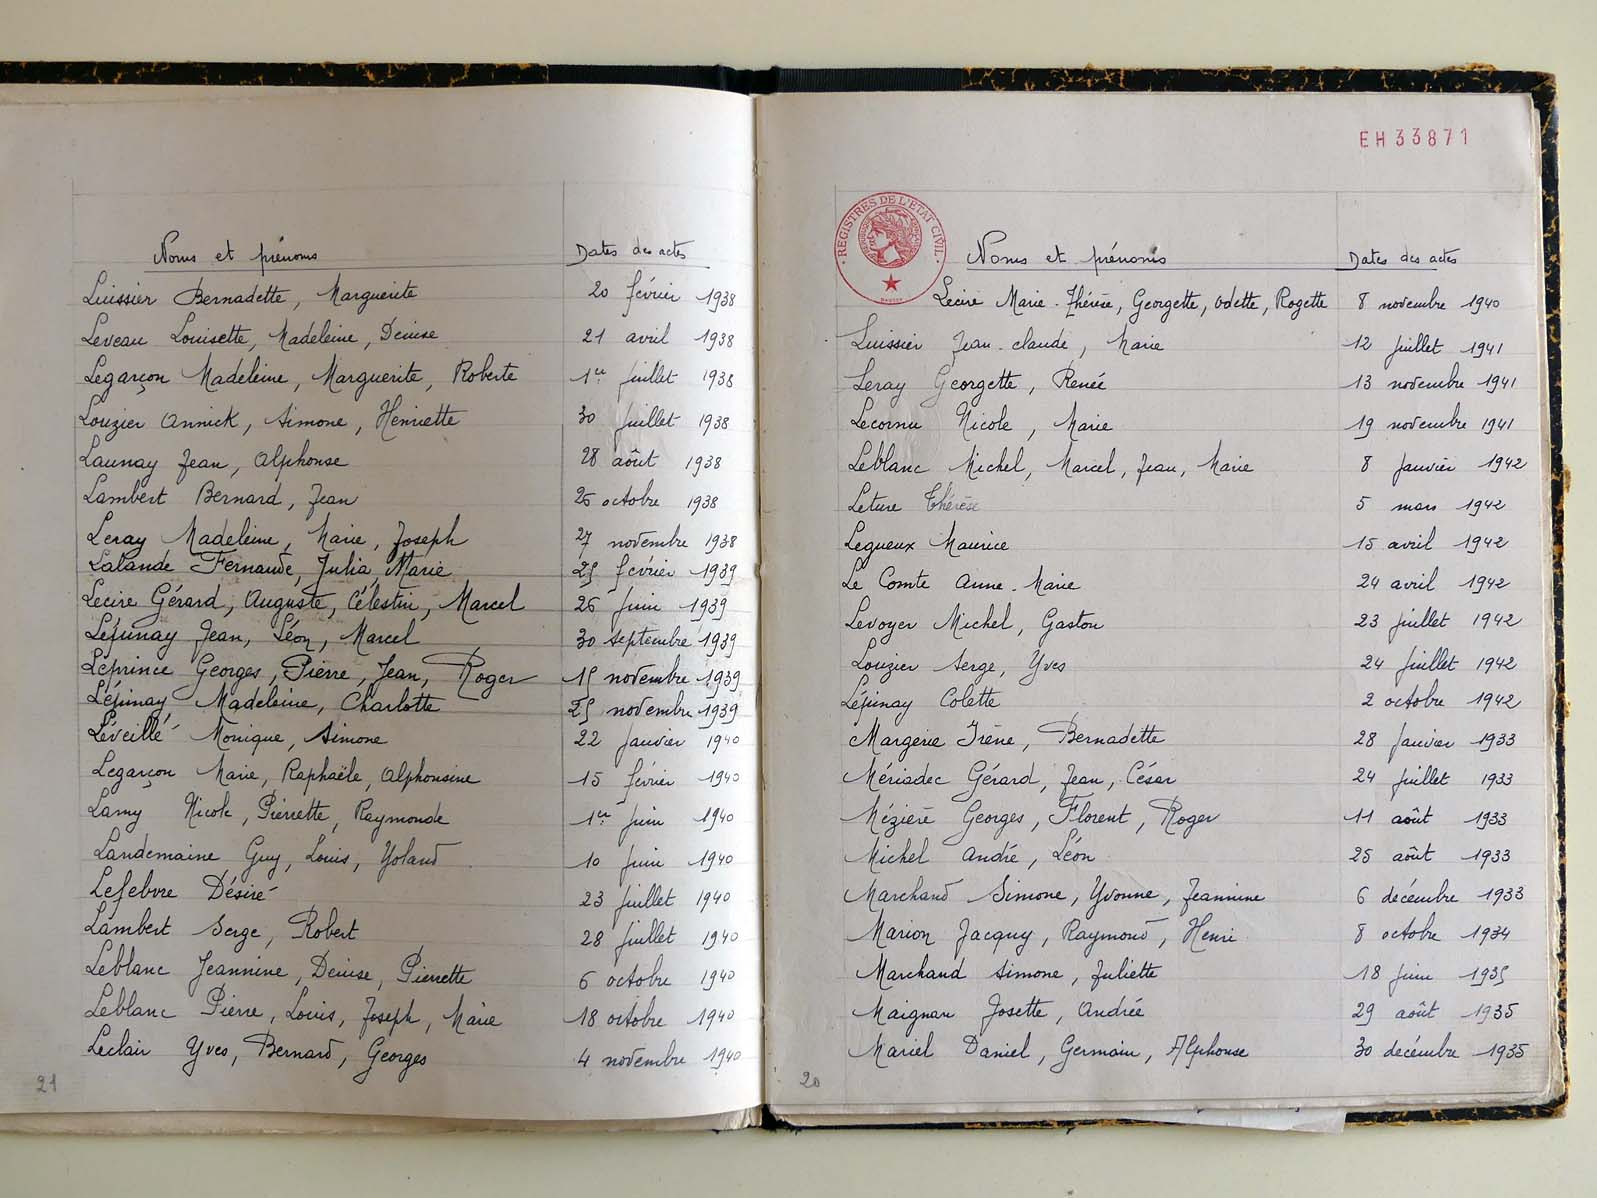 Noms et prénoms Dates des actes
Luissier Bernadette, Marguerite 20 février 1938
Leveau Louisette, Madeleine, Denise 21 avril 1938
Legarçon Madeleine, Marguerite, Roberte 1er juillet 1938
Louzier Annick, Simone, Henriette 30 juillet 1938
Launay Jean, Alphonse 28 août 1938
Lambert Bernard, Jean 26 octobre 1938
Leray Madeleine, Marie, Joseph 27 novembre 1938
Lalande Fernande, Julia, Marie 25 février 1939
Lecire Gérard, Auguste, Célestin, Marcel 26 juin 1939
Lépinay Jean, Léon, Marcel 30 septembre 1939
Léprince Georges, Pierre, Jean, Roger 15 novembre 1939
Lépinay Madeleine, Charlotte 25 novembre 1939
Léveillé Monique, Simone 22 janvier 1940
Legarçon Marie, Raphaële, Alphonsine 15 février 1940
Lamy Nicole, Pierrette, Raymonde 1er juin 1940
Landemaine Guy, Louis, Yoland 10 juin 1940
Lefebvre Désiré 23 juillet 1940
Lambert Serge, Robert 28 juillet 1940
Leblanc Jeannine, Denise, Pierrette 6 octobre 1940
Leblanc Pierre, Louis, Joseph, Marie 18 octobre 1940
Leclair Yves, Bernard, Georges 4 novembre 1940
21
EH33871
REGISTRES DE L'ETAT CIVIL
Noms et prénoms Dates des actes
Lecire Marie-Thérèse, Georgette, Odette, Rogette 8 novembre 1940
Luissier Jean-Claude, Marie 12 juillet 1941
Leray Georgette, Renée 13 novembre 1941
Lecornu Nicole, Marie 19 novembre 1941
Leblanc Michel, Marcel, Jean, Marie 8 janvier 1942
Leture Thérèse 5 mars 1942
Legueux Maurice 15 avril 1942
Le Comte Anne-Marie 24 avril 1942
Levoyer Michel, Gaston 23 juillet 1942
Louzier Serge, Yves 24 juillet 1942
Lépinay Colette 2 octobre 1942
Margerie Irène, Bernadette 28 janvier 1933
Mériadec Gérard, Jean, César 24 juillet 1933
Mézière Georges, Florent, Roger 11 août 1933
Michel André, Léon 25 août 1933
Marchand Simone, Yvonne, Jeannine 6 décembre 1933
Marion Jacquy, Raymond, Henri 8 octobre 1934
Marchand Simone, Juliette 18 juin 1935
Maignan Josette, Andrée 29 août 1935
Mariel Daniel, Germain, Alphonse 30 décembre 1935
20